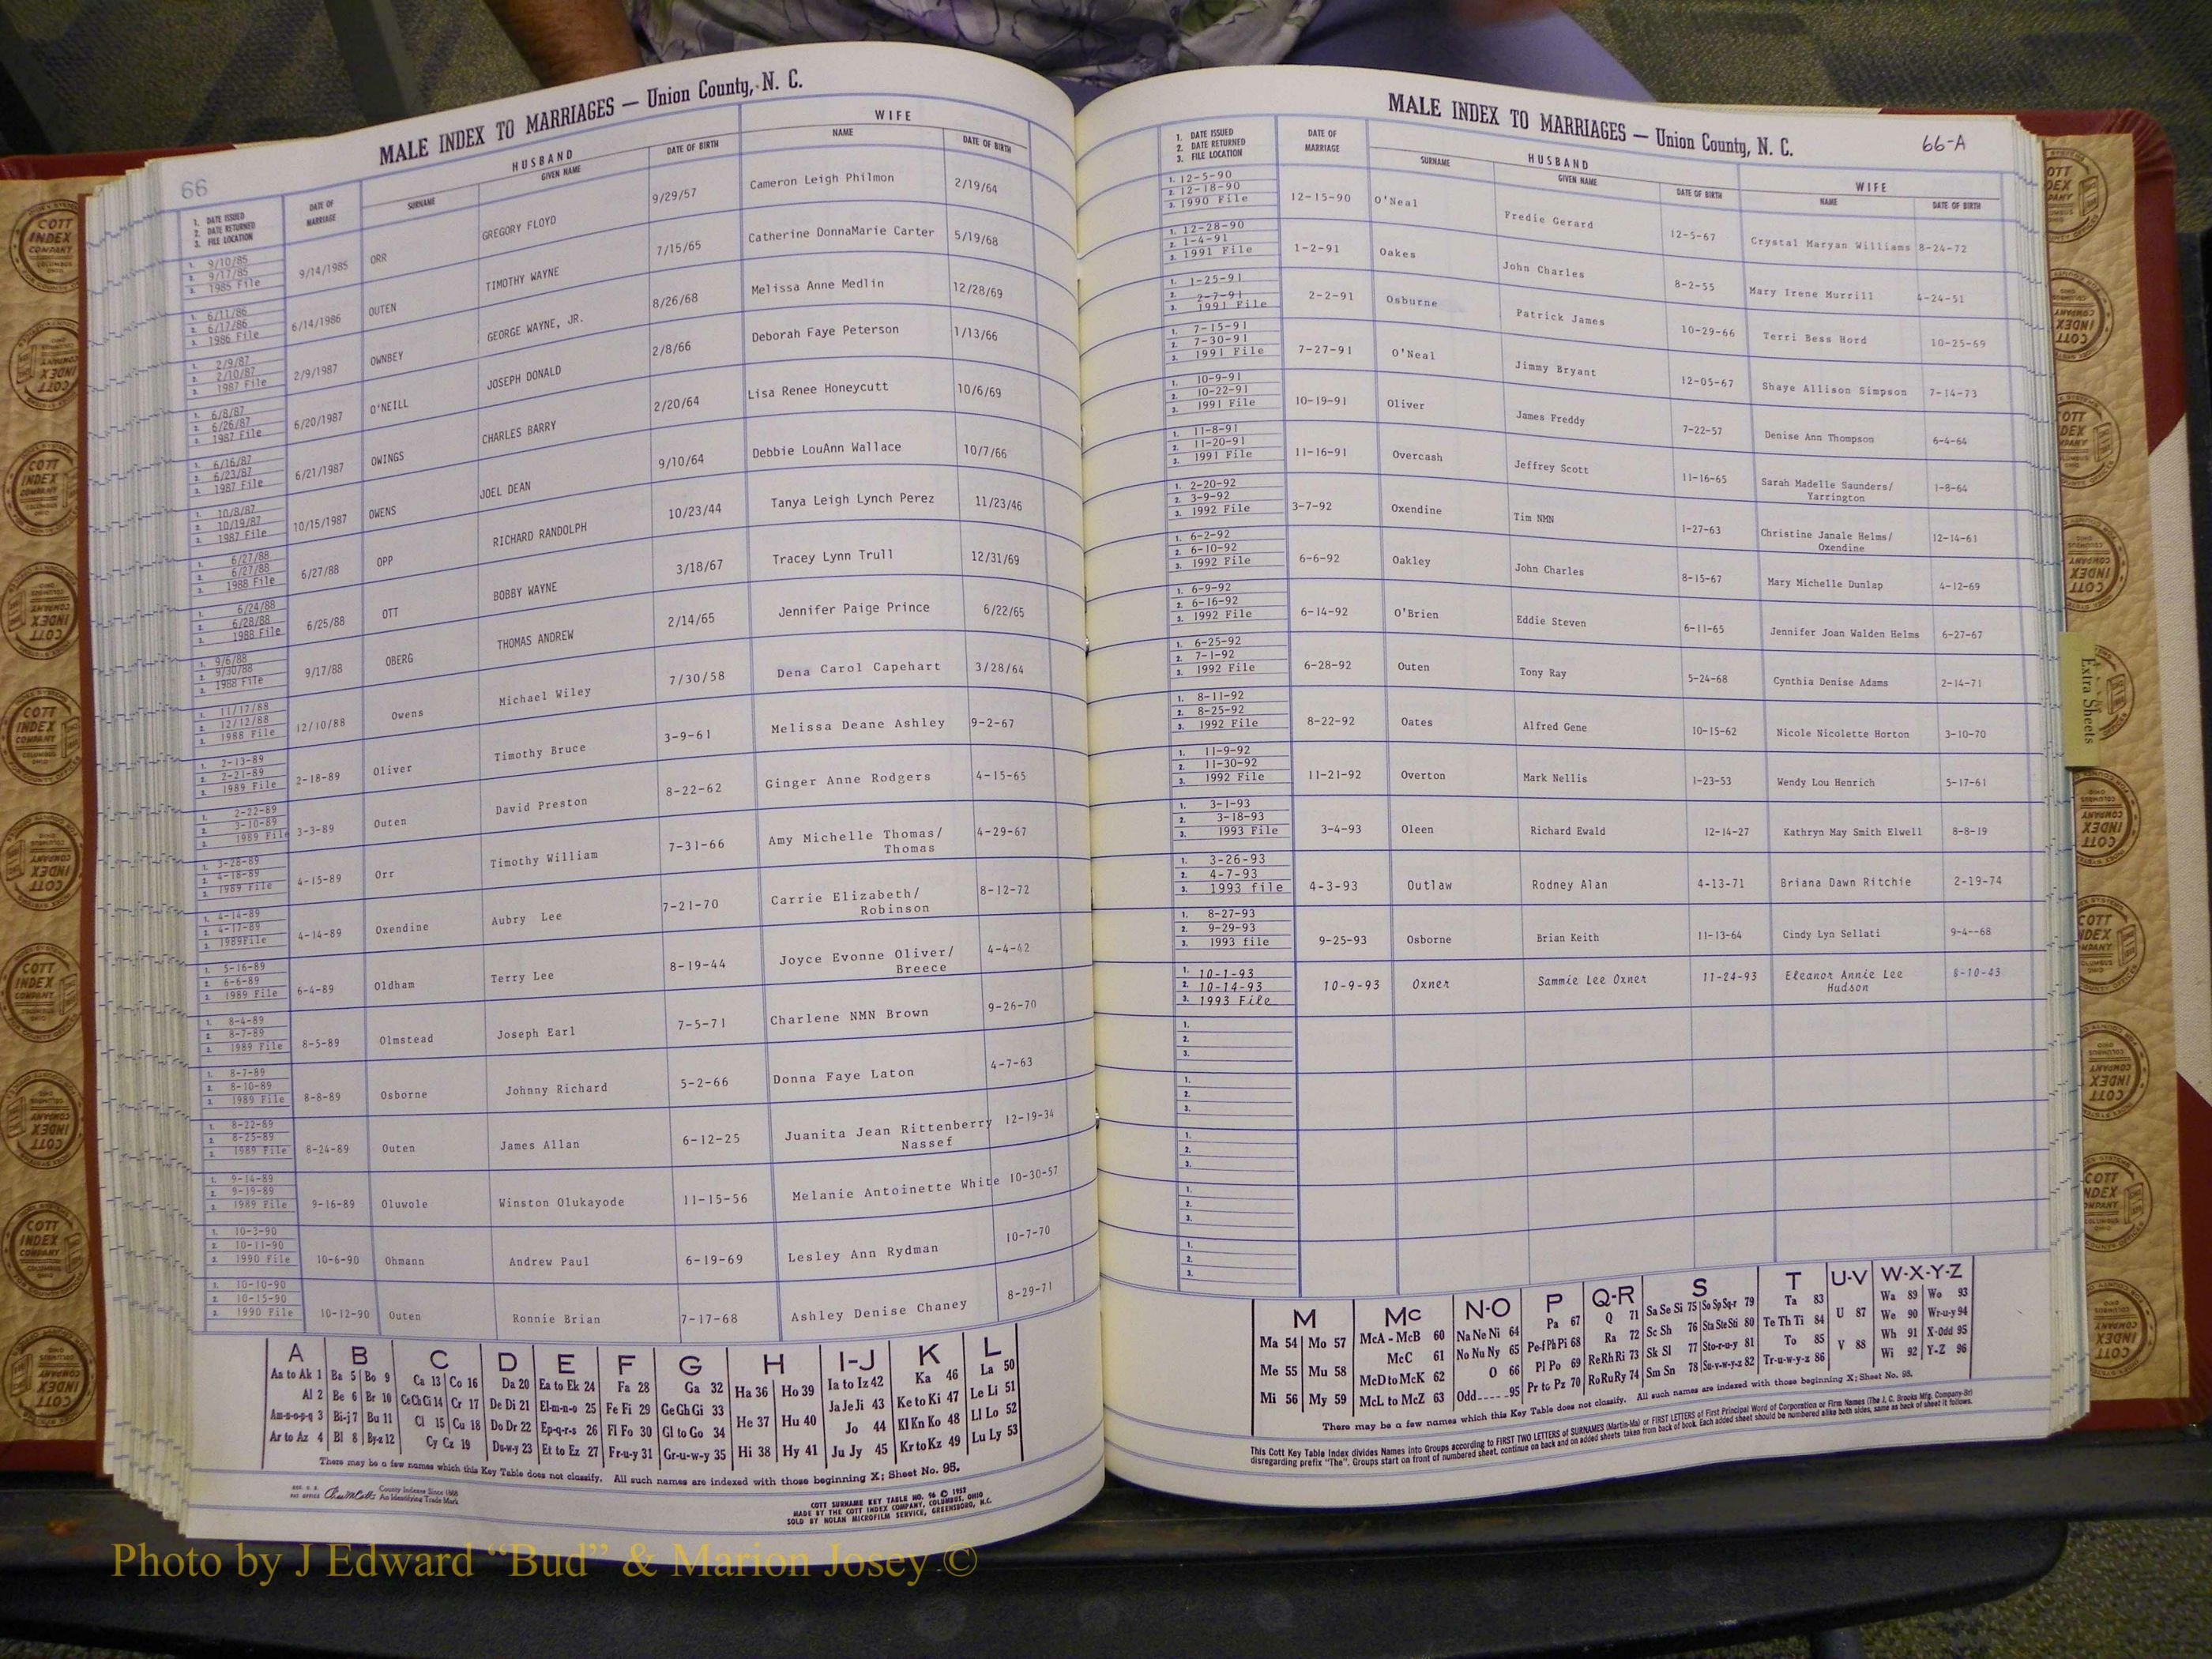 66
MALE INDEX TO MARRIAGES — Union County, N. C.
1. DATE ISSUED
2. DATE RETURNED
3. FILE LOCATION
DATE OF MARRIAGE
HUSBAND
SURNAME GIVEN NAME DATE OF BIRTH
WIFE
NAME DATE OF BIRTH
1. 9/10/85
2. 9/17/85
3. 1985 File
9/14/1985 ORR GREGORY FLOYD 9/29/57 Cameron Leigh Philmon 2/19/64
1. 6/11/86
2. 6/17/86
3. 1986 File
6/14/1986 OUTEN TIMOTHY WAYNE 7/15/65 Catherine DonnaMarie Carter 5/19/68
1. 2/9/87
2. 2/10/87
3. 1987 File
2/9/1987 OWNBEY GEORGE WAYNE, JR. 8/26/68 Melissa Anne Medlin 12/28/69
1. 6/8/87
2. 6/26/87
3. 1987 File
6/20/1987 O'NEILL JOSEPH DONALD 2/8/66 Deborah Faye Peterson 1/13/66
1. 6/16/87
2. 6/23/87
3. 1987 File
6/21/1987 OWINGS CHARLES BARRY 2/20/64 Lisa Renee Honeycutt 10/6/69
1. 10/8/87
2. 10/19/87
3. 1987 File
10/15/1987 OWENS JOEL DEAN 9/10/64 Debbie LouAnn Wallace 10/7/66
1. 6/27/88
2. 6/27/88
3. 1988 File
6/27/88 OPP RICHARD RANDOLPH 10/23/44 Tanya Leigh Lynch Perez 11/23/46
1. 6/24/88
2. 6/28/88
3. 1988 File
6/25/88 OTT BOBBY WAYNE 3/18/67 Tracey Lynn Trull 12/31/69
1. 9/6/88
2. 9/30/88
3. 1988 File
9/17/88 OBERG THOMAS ANDREW 2/14/65 Jennifer Paige Prince 6/22/65
1. 11/17/88
2. 12/12/88
3. 1988 File
12/10/88 Owens Michael Wiley 7/30/58 Dena Carol Capehart 3/28/64
1. 2-13-89
2. 2-21-89
3. 1989 File
2-18-89 Oliver Timothy Bruce 3-9-61 Melissa Deane Ashley 9-2-67
1. 2-22-89
2. 3-10-89
3. 1989 File
3-3-89 Outen David Preston 8-22-62 Ginger Anne Rodgers 4-15-65
1. 3-28-89
2. 4-18-89
3. 1989 File
4-15-89 Orr Timothy William 7-31-66 Amy Michelle Thomas/ 4-29-67
Thomas
1. 4-14-89
2. 4-17-89
3. 1989File
4-14-89 Oxendine Aubry Lee 7-21-70 Carrie Elizabeth/ 8-12-72
Robinson
1. 5-16-89
2. 6-6-89
3. 1989 File
6-4-89 Oldham Terry Lee 8-19-44 Joyce Evonne Oliver/ 4-4-42
Breece
1. 8-4-89
2. 8-7-89
3. 1989 File
8-5-89 Olmstead Joseph Earl 7-5-71 Charlene NMN Brown 9-26-70
1. 8-7-89
2. 8-10-89
3. 1989 File
8-8-89 Osborne Johnny Richard 5-2-66 Donna Faye Laton 4-7-63
1. 8-22-89
2. 8-25-89
3. 1989 File
8-24-89 Outen James Allan 6-12-25 Juanita Jean Rittenberry 12-19-34
Nassef
1. 9-14-89
2. 9-19-89
3. 1989 File
9-16-89 Oluwole Winston Olukayode 11-15-56 Melanie Antoinette White 10-30-57
1. 10-3-90
2. 10-11-90
3. 1990 File
10-6-90 Ohmann Andrew Paul 6-19-69 Lesley Ann Rydman 10-7-70
1. 10-10-90
2. 10-15-90
3. 1990 File
10-12-90 Outen Ronnie Brian 7-17-68 Ashley Denise Chaney 8-29-71
A B C D E F G H I-J K L
Aa to Ak 1 Ba 5 Bo 9 Ca 13 Co 16 Da 20 Ea to Ek 24 Fa 28 Ga 32 Ha 36 Ho 39 Ia to Iz 42 Ka 46 La 50
Al 2 Be 6 Br 10 Ce Ch Ci 14 Cr 17 De Di 21 El-m-n-o 25 Fe Fi 29 Ge Gh Gi 33 He 37 Hu 40 Ja Je Ji 43 Ke to Ki 47 Le Li 51
Am-n-o-p-q 3 Bi-j 7 Bu 11 Cl 15 Cu 18 Do Dr 22 Ep-q-r-s 26 Fl Fo 30 Gl to Go 34 Hi 38 Hy 41 Jo 44 Kl Kn Ko 48 Ll Lo 52
Ar to Az 4 Bl 8 By-z 12 Cy Cz 19 Du-w-y 23 Et to Ez 27 Fr-u-y 31 Gr-u-w-y 35 Ju Jy 45 Kr to Kz 49 Lu Ly 53
There may be a few names which this Key Table does not classify. All such names are indexed with those beginning X; Sheet No. 95.
County Indexes Since 1888
An Identifying Trade Mark
COTT SURNAME KEY TABLE NO. 96 © 1952
MADE BY THE COTT INDEX COMPANY, COLUMBUS, OHIO
SOLD BY NOLAN MICROFILM SERVICE, GREENSBORO, N.C.
MALE INDEX TO MARRIAGES — Union County, N. C.
66-A
1. DATE ISSUED
2. DATE RETURNED
3. FILE LOCATION
DATE OF MARRIAGE
HUSBAND
SURNAME GIVEN NAME DATE OF BIRTH
WIFE
NAME DATE OF BIRTH
1. 12-5-90
2. 12-18-90
3. 1990 File
12-15-90 O'Neal Fredie Gerard 12-5-67 Crystal Maryan Williams 8-24-72
1. 12-28-90
2. 1-4-91
3. 1991 File
1-2-91 Oakes John Charles 8-2-55 Mary Irene Murrill 4-24-51
1. 1-25-91
2. 2-7-91
3. 1991 File
2-2-91 Osburne Patrick James 10-29-66 Terri Bess Hord 10-25-69
1. 7-15-91
2. 7-30-91
3. 1991 File
7-27-91 O'Neal Jimmy Bryant 12-05-67 Shaye Allison Simpson 7-14-73
1. 10-9-91
2. 10-22-91
3. 1991 File
10-19-91 Oliver James Freddy 7-22-57 Denise Ann Thompson 6-4-64
1. 11-8-91
2. 11-20-91
3. 1991 File
11-16-91 Overcash Jeffrey Scott 11-16-65 Sarah Madelle Saunders/ 1-8-64
Yarrington
1. 2-20-92
2. 3-9-92
3. 1992 File
3-7-92 Oxendine Tim NMN 1-27-63 Christine Janale Helms/ 12-14-61
Oxendine
1. 6-2-92
2. 6-10-92
3. 1992 File
6-6-92 Oakley John Charles 8-15-67 Mary Michelle Dunlap 4-12-69
1. 6-9-92
2. 6-16-92
3. 1992 File
6-14-92 O'Brien Eddie Steven 6-11-65 Jennifer Joan Walden Helms 6-27-67
1. 6-25-92
2. 7-1-92
3. 1992 File
6-28-92 Outen Tony Ray 5-24-68 Cynthia Denise Adams 2-14-71
1. 8-11-92
2. 8-25-92
3. 1992 File
8-22-92 Oates Alfred Gene 10-15-62 Nicole Nicolette Horton 3-10-70
1. 11-9-92
2. 11-30-92
3. 1992 File
11-21-92 Overton Mark Nellis 1-23-53 Wendy Lou Henrich 5-17-61
1. 3-1-93
2. 3-18-93
3. 1993 File
3-4-93 Oleen Richard Ewald 12-14-27 Kathryn May Smith Elwell 8-8-19
1. 3-26-93
2. 4-7-93
3. 1993 file
4-3-93 Outlaw Rodney Alan 4-13-71 Briana Dawn Ritchie 2-19-74
1. 8-27-93
2. 9-29-93
3. 1993 file
9-25-93 Osborne Brian Keith 11-13-64 Cindy Lyn Sellati 9-4--68
1. 10-1-93
2. 10-14-93
3. 1993 File
10-9-93 Oxner Sammie Lee Oxner 11-24-93 Eleanor Annie Lee 8-10-43
Hudson
1.
2.
3.
1.
2.
3.
1.
2.
3.
1.
2.
3.
1.
2.
3.
M Mc N-O P Q-R S T U-V W-X-Y-Z
Ma 54 Mo 57 McA - McB 60 Na Ne Ni 64 Pa 67 Q 71 Sa Se Si 75 So Sp Sq-r 79 Ta 83 U 87 Wa 89 Wo 93
Me 55 Mu 58 McC 61 No Nu Ny 65 Pe-f Ph Pi 68 Ra 72 Sc Sh 76 Sta Ste Sti 80 Te Th Ti 84 V 88 We 90 Wr-u-y 94
Mi 56 My 59 McD to McK 62 O 66 Pl Po 69 Re Rh Ri 73 Sk Sl 77 Sto-r-u-y 81 To 85 Wh 91 X-Odd 95
McL to McZ 63 Odd 95 Pr to Pz 70 Ro Ru Ry 74 Sm Sn 78 Su-v-w-y-z 82 Tr-u-w-y-z 86 Wi 92 Y-Z 96
There may be a few names which this Key Table does not classify. All such names are indexed with those beginning X; Sheet No. 95.
This Cott Key Table Index divides Names into Groups according to FIRST TWO LETTERS of SURNAMES (Martin-Ma) or FIRST LETTERS of First Principal Word of Corporation or Firm Names (The J. C. Brooks Mfg. Company-Br)
disregarding prefix "The". Groups start on front of numbered sheet, continue on back and on added sheets taken from back of book. Each added sheet should be numbered alike both sides, same as back of sheet it follows.
Extra Sheets
COTT INDEX COMPANY
Photo by J Edward “Bud” & Marion Josey ©